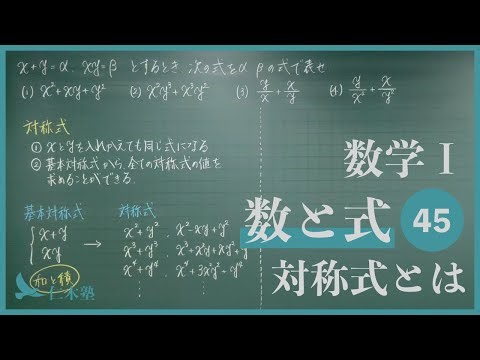 x+y=α, xy=β とするとき 次の式を α β の式で表せ
(1) x²+xy+y² (2) x²y³+x³y² (3) y/x + x/y (4) y/x² + x/y²
対称式
① xとyを入れかえても同じ式になる
② 基本対称式から、全ての対称式の値を
求めることができる.
基本対称式 対称式
x+y → x²+y² , x²-xy+y²
xy x³+y³ , x³+x²y+xy²+y³
x⁴+y⁴ , x⁴+3x²y²+y⁴
和と積
木塾
数学Ⅰ
数と式 45
対称式とは